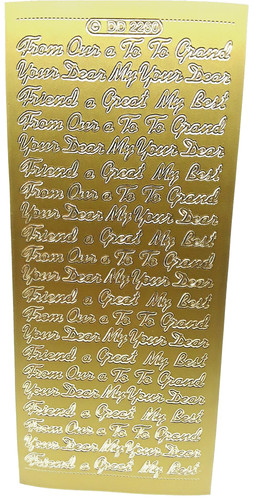 © DD 2283
From Our a To To Grand
Your Dear My Your Dear
Friend a Great My Best
From Our a To To Grand
Your Dear My Your Dear
Friend a Great My Best
From Our a To To Grand
Your Dear My Your Dear
Friend a Great My Best
From Our a To To Grand
Your Dear My Your Dear
Friend a Great My Best
From Our a To To Grand
Your Dear My Your Dear
Friend a Great My Best
From Our a To To Grand
Your Dear My Your Dear
Friend a Great My Best
From Our a To To Grand
Your Dear My Your Dear
Friend a Great My Best